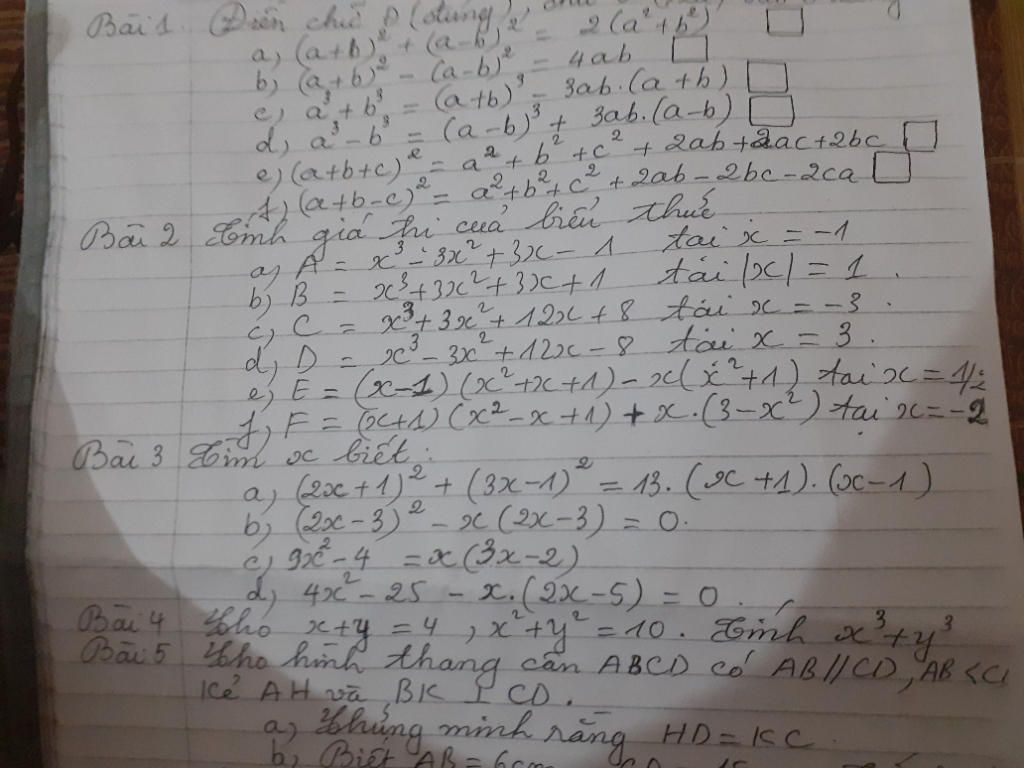 Bài 1. Điền chữ Đ (đúng),
a, (a+b)² + (a-b)² = 2(a²+b²)
b, (a+b)² - (a-b)² = 4ab
c, a³+b³ = (a+b)³ - 3ab.(a+b)
d, a³-b³ = (a-b)³ + 3ab.(a-b)
e, (a+b+c)² = a²+b²+c²+2ab+2ac+2bc
f, (a+b-c)² = a²+b²+c²+2ab-2bc-2ca
Bài 2 Tính giá trị của biểu thức
a, A = x³-3x²+3x-1 tại x = -1
b, B = x³+3x²+3x+1 tại |x| = 1.
c, C = x³+3x²+12x+8 tại x = -3.
d, D = x³-3x²+12x-8 tại x = 3.
e, E = (x-1)(x²+x+1)-x(x²+1) tại x = 1/2
f, F = (x+1)(x²-x+1)+x.(3-x²) tại x=-2
Bài 3 Tìm x biết:
a, (2x+1)²+(3x-1)² = 13.(x+1).(x-1)
b, (2x-3)² - x(2x-3) = 0.
c, 9x²-4 = x(3x-2)
d, 4x²-25 - x.(2x-5) = 0.
Bài 4 Cho x+y = 4, x²+y² = 10. Tính x³+y³
Bài 5 Cho hình thang cân ABCD có AB//CD, AB<CD
Kẻ AH và BK ⊥ CD.
a, Chứng minh rằng HD = KC.
b, Biết AB = 6cm